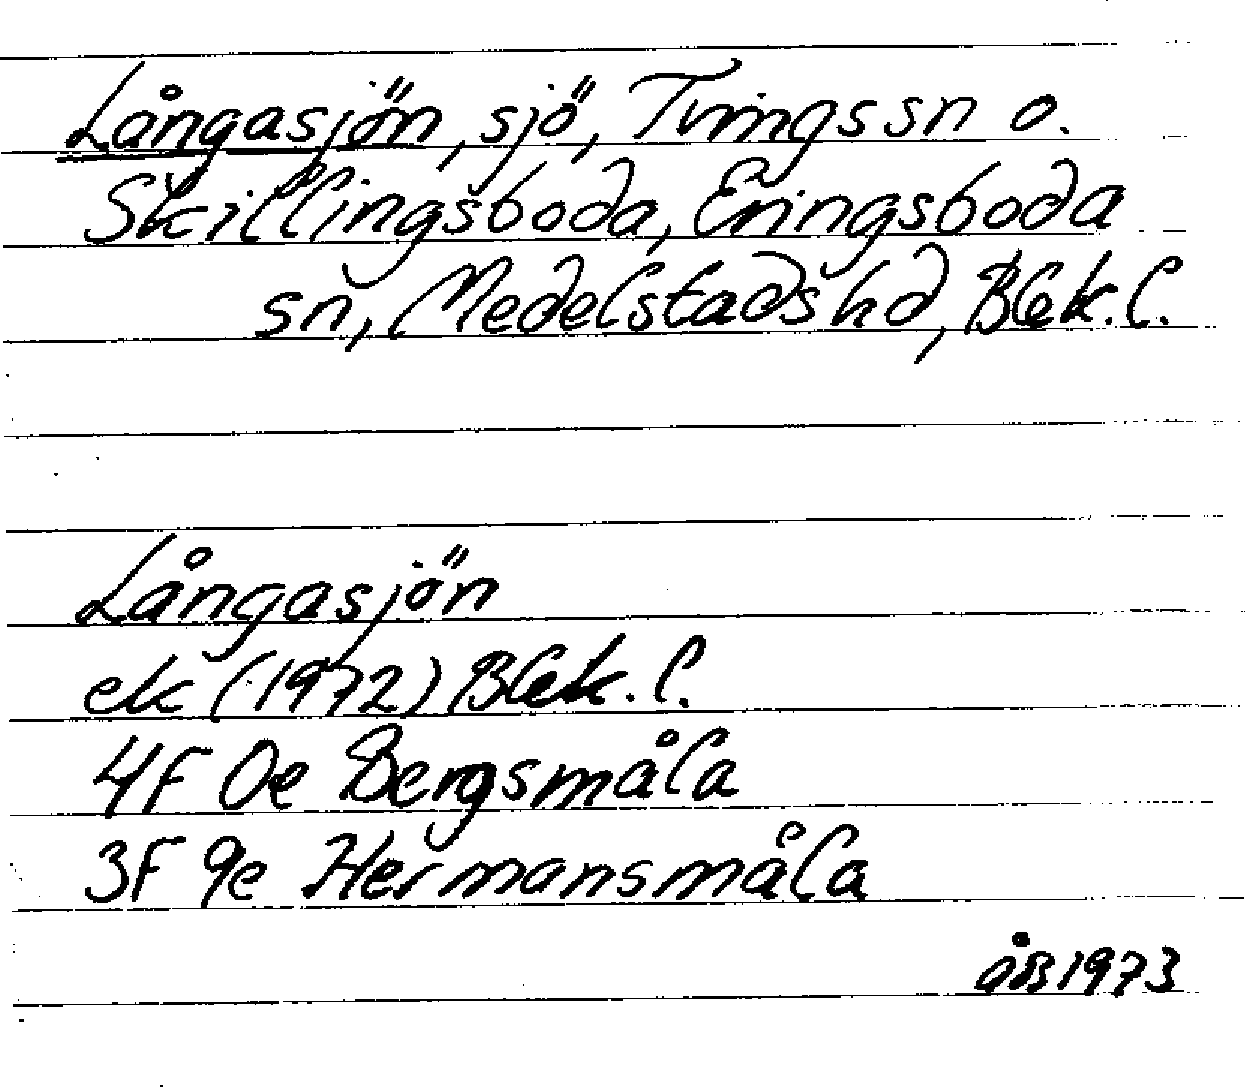 Långasjön, sjö, Tvings sn o.
Skillingsboda, Eringsboda
sn, Medelstads hd, Blek. l.
Långasjön
ek (1972) Blek. l.
4F 0e Bergsmåla
3F 9e Hermansmåla
åß 1973